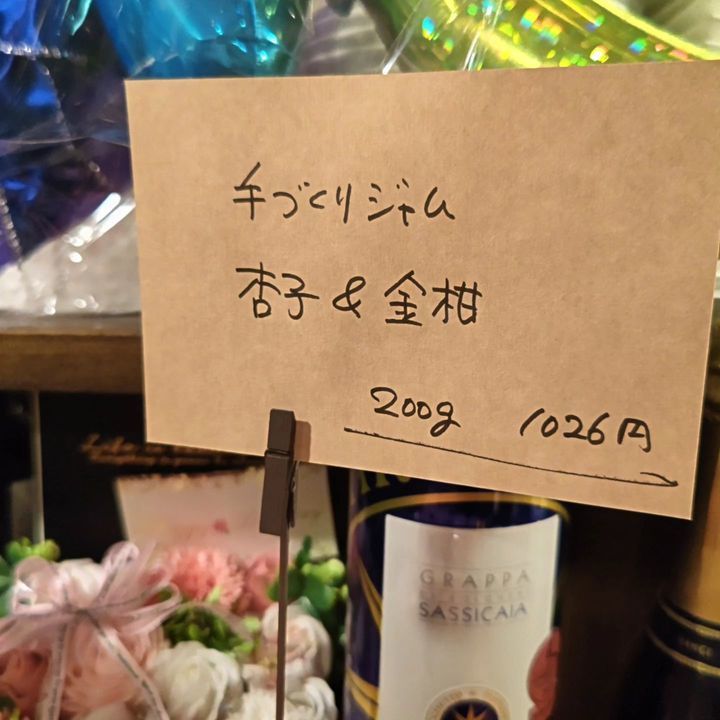 手づくりジャム
杏子&金柑
200g 1026円
GRAPPA
SASSICAIA